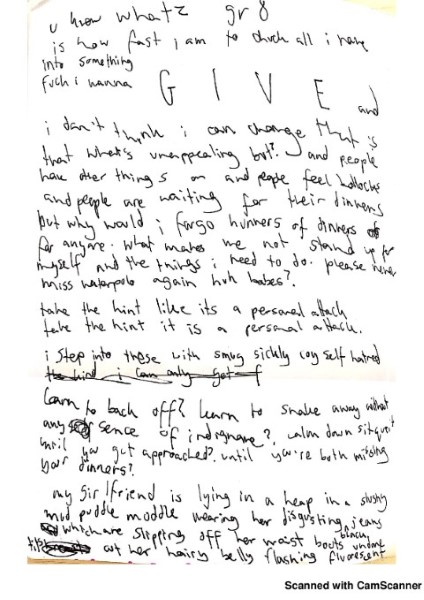 u know whats gr8
is how fast i am to chuck all i have
into something
fuck i wanna
G I V E and
i don't think i can change that is
that what's unappealing but? and people
have other things on and people feel bollocks
and people are waiting for their dinners
but why would i forgo hunners of dinners
for anyone. what makes me not stand up for
myself and the things i need to do. please never
miss waterpolo again huh babes?
take the hint like its a personal attack
take the hint it is a personal attack.
i step into these with smug sickly coy self hatred
learn to back off? learn to snake away without
any sence of indignance? calm down sit quiet
until you get approached? until you're both missing
your dinners?
my girlfriend is lying in a heap in a slushy
mud puddle moddle wearing her disgusting jeans
which are slipping off her waist boots undone
out her hairy belly flashing fluorescent
Scanned with CamScanner